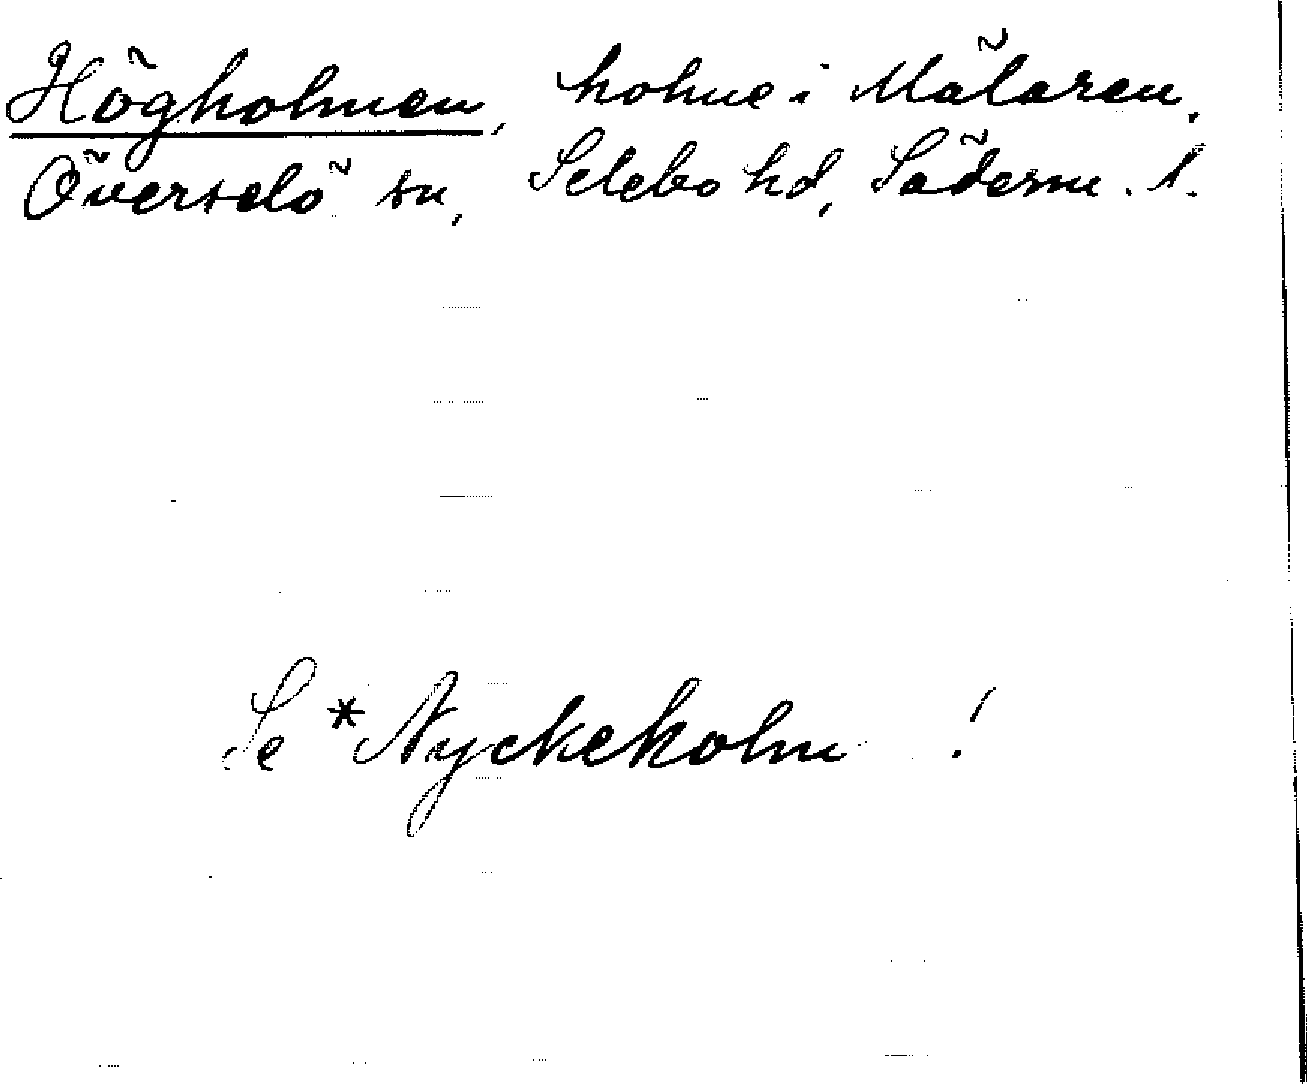 Högholmen, holme i Mälaren,
Överselö sn, Selebo hd, Söderm. l.
Se *Nyckeholm !